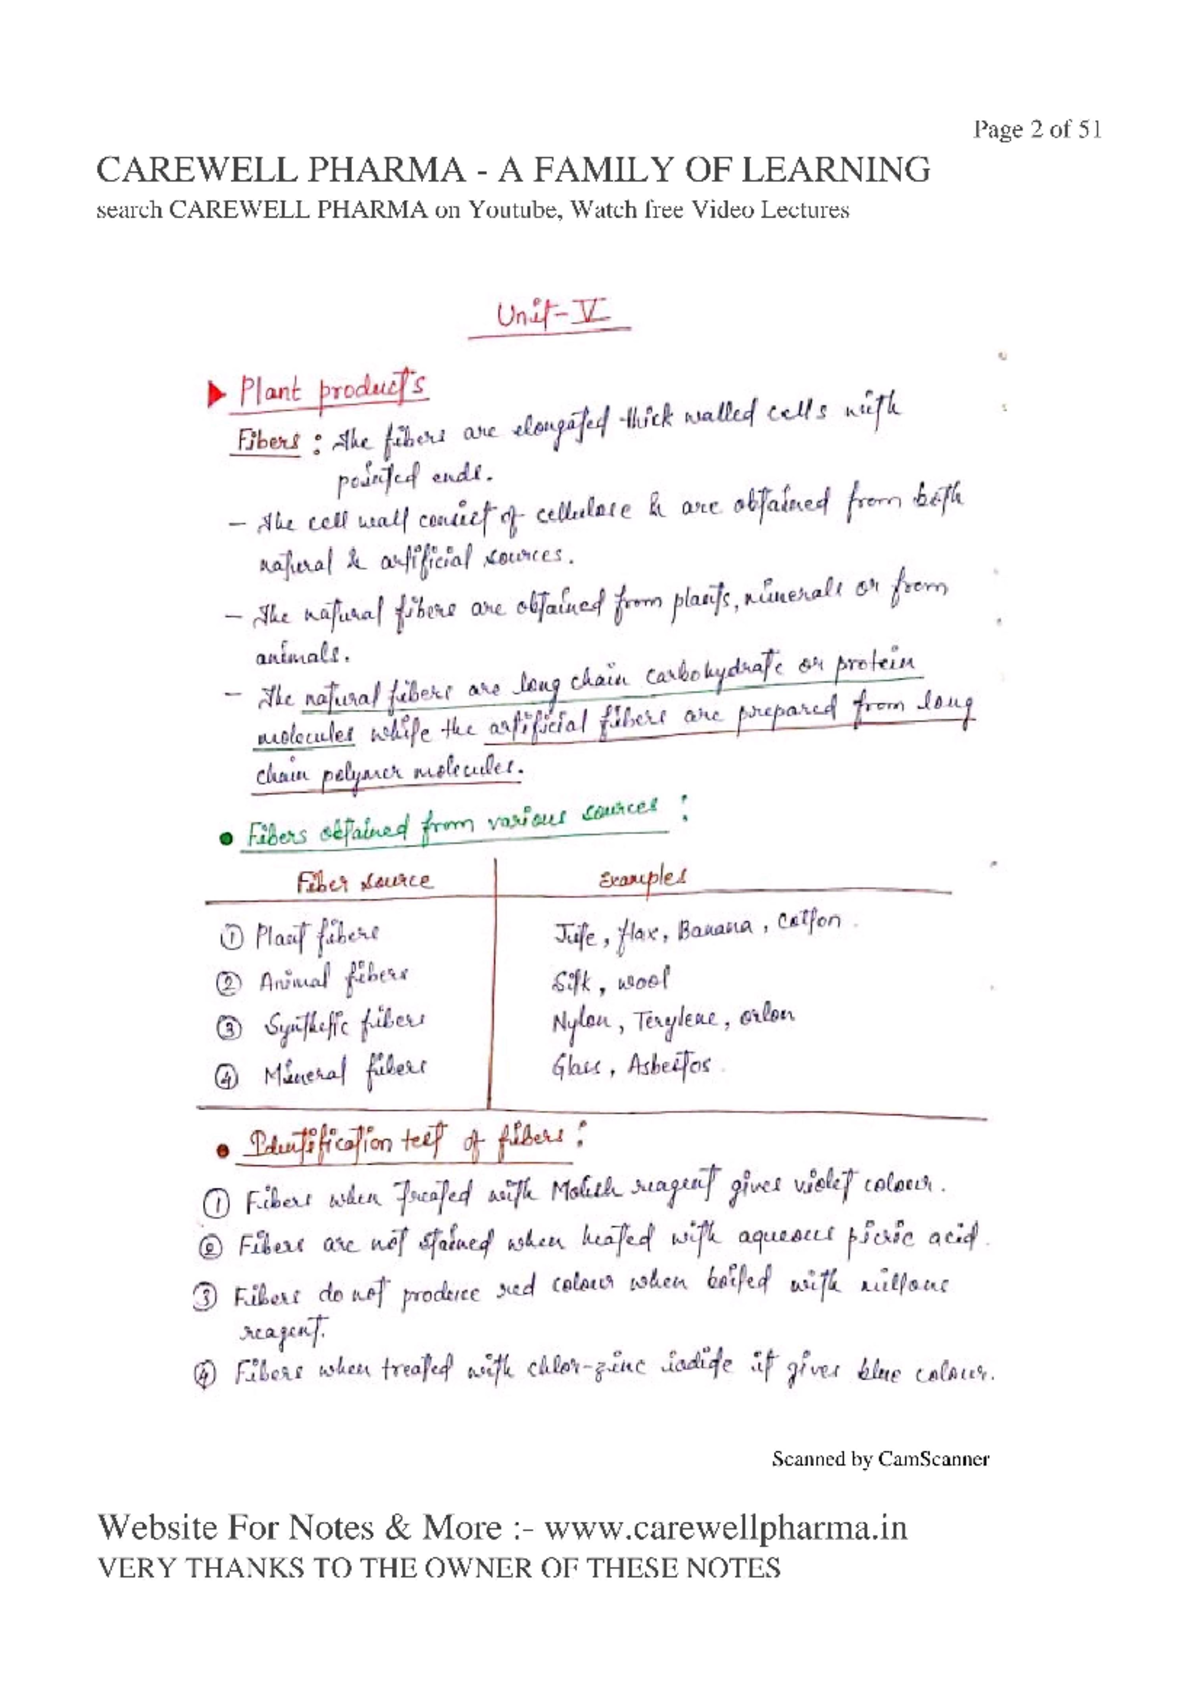 Page 2 of 51
CAREWELL PHARMA - A FAMILY OF LEARNING
search CAREWELL PHARMA on Youtube, Watch free Video Lectures
Unit-V
Plant products
Fibers : The fibers are elongated thick walled cells with
pointed ends.
- The cell wall consist of cellulose & are obtained from both
natural & artificial sources.
- The natural fibers are obtained from plants, minerals or from
animals.
- The natural fibers are long chain carbohydrate or protein
molecules while the artificial fibers are prepared from long
chain polymer molecules.
• Fibers obtained from various sources :
Fiber source Examples
① Plant fibers Jute, flax, Banana, Cotton.
② Animal fibers Silk, wool
③ Synthetic fibers Nylon, Terylene, orlon
④ Mineral fibers Glass, Asbestos.
• Identification test of fibers :
① Fibers when treated with Molish reagent gives violet colour.
② Fibers are not stained when heated with aqueous picric acid.
③ Fibers do not produce red colour when boiled with millons
reagent.
④ Fibers when treated with chlor-zinc iodide it gives blue colour.
Scanned by CamScanner
Website For Notes & More :- www.carewellpharma.in
VERY THANKS TO THE OWNER OF THESE NOTES